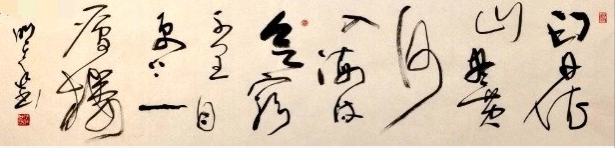 白日依
山尽黄
河
入海流
欲穷
千里目
更上一
層樓